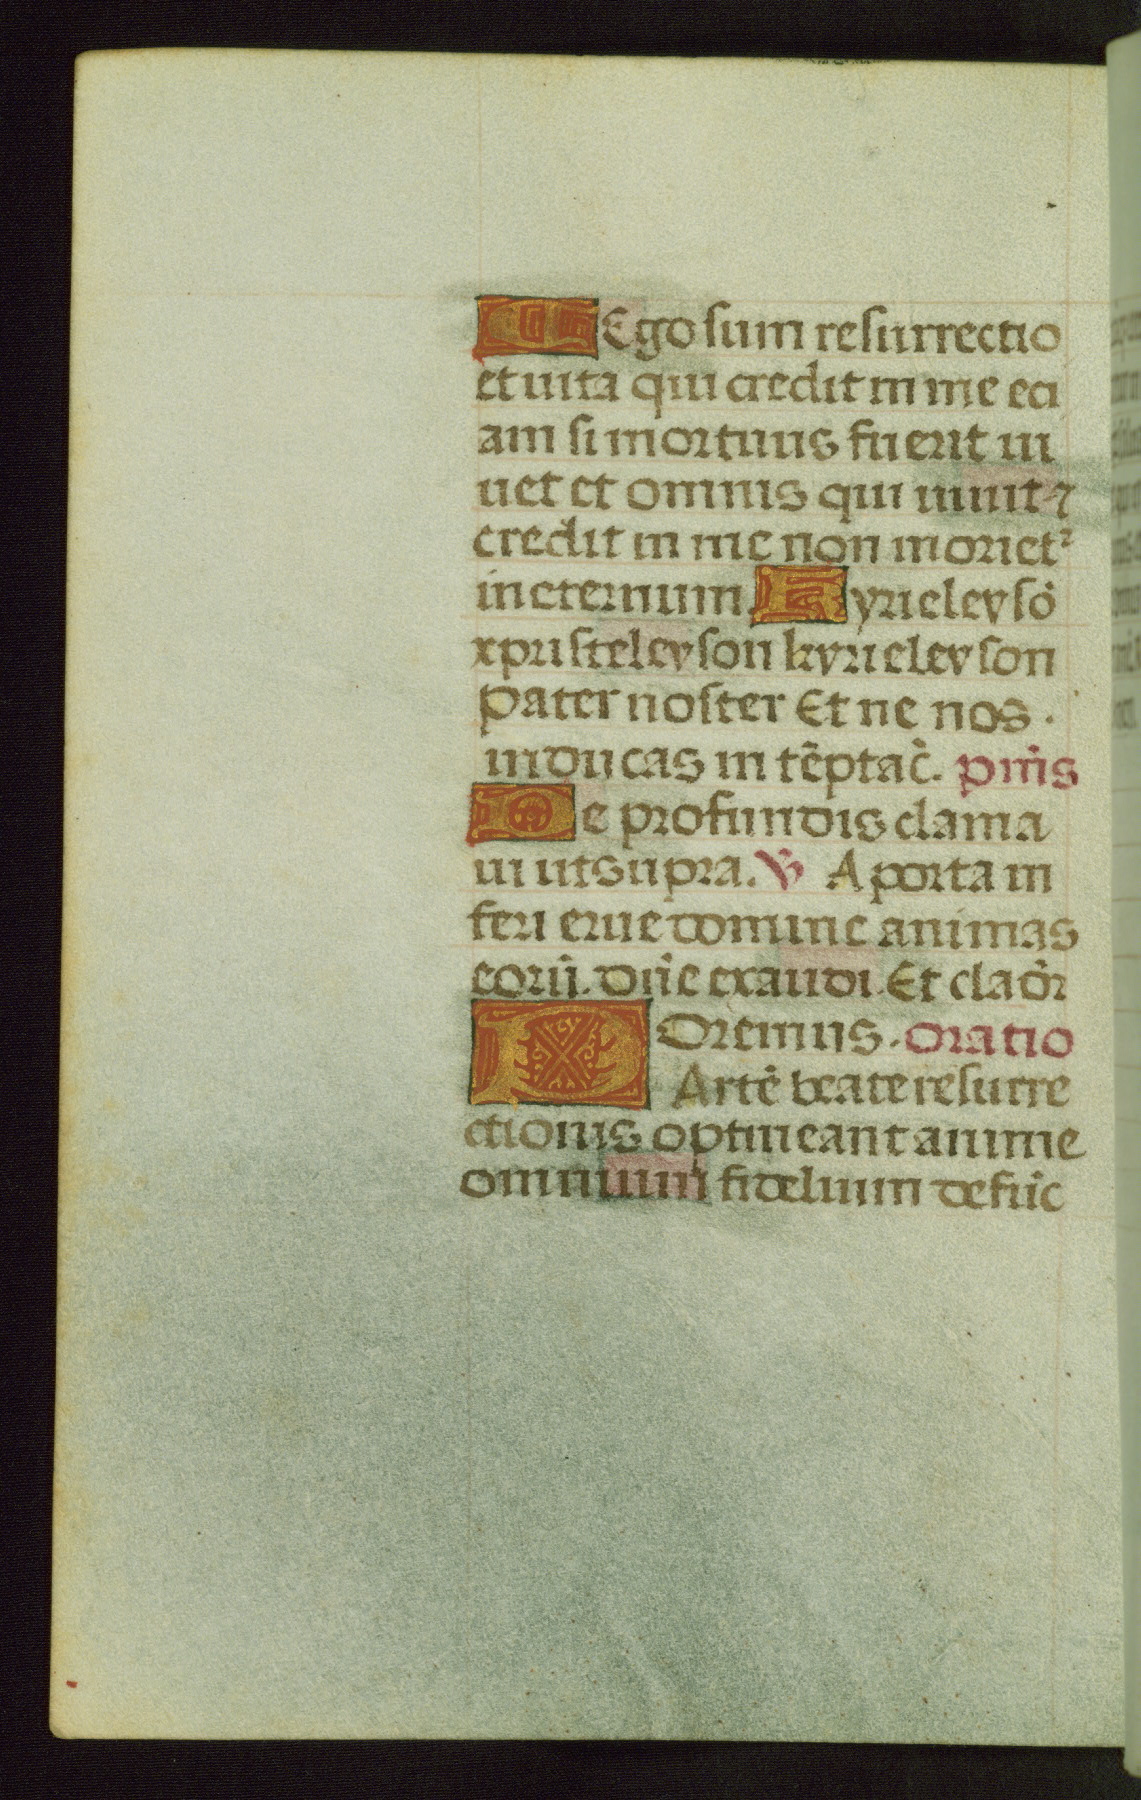 Ego sum resurrectio
et uita qui credit in me eci
am si mortuus fuerit ui
uet et omnis qui uiuit ⁊
credit in me non moriet᷑
in eternum Kyrieleysō
xpristeleyson kyrieleyson
pater noster Et ne nos ·
inducas in tēptac̄. pm̄s
De profundis clama
ui ut supra. ℣ A porta in
feri erue domine animas
eorū. dn̄e exaudi. Et clāor
Oremus. oratio
Partē beate resurre
ctionis optineant anime
omnium fidelium defūc